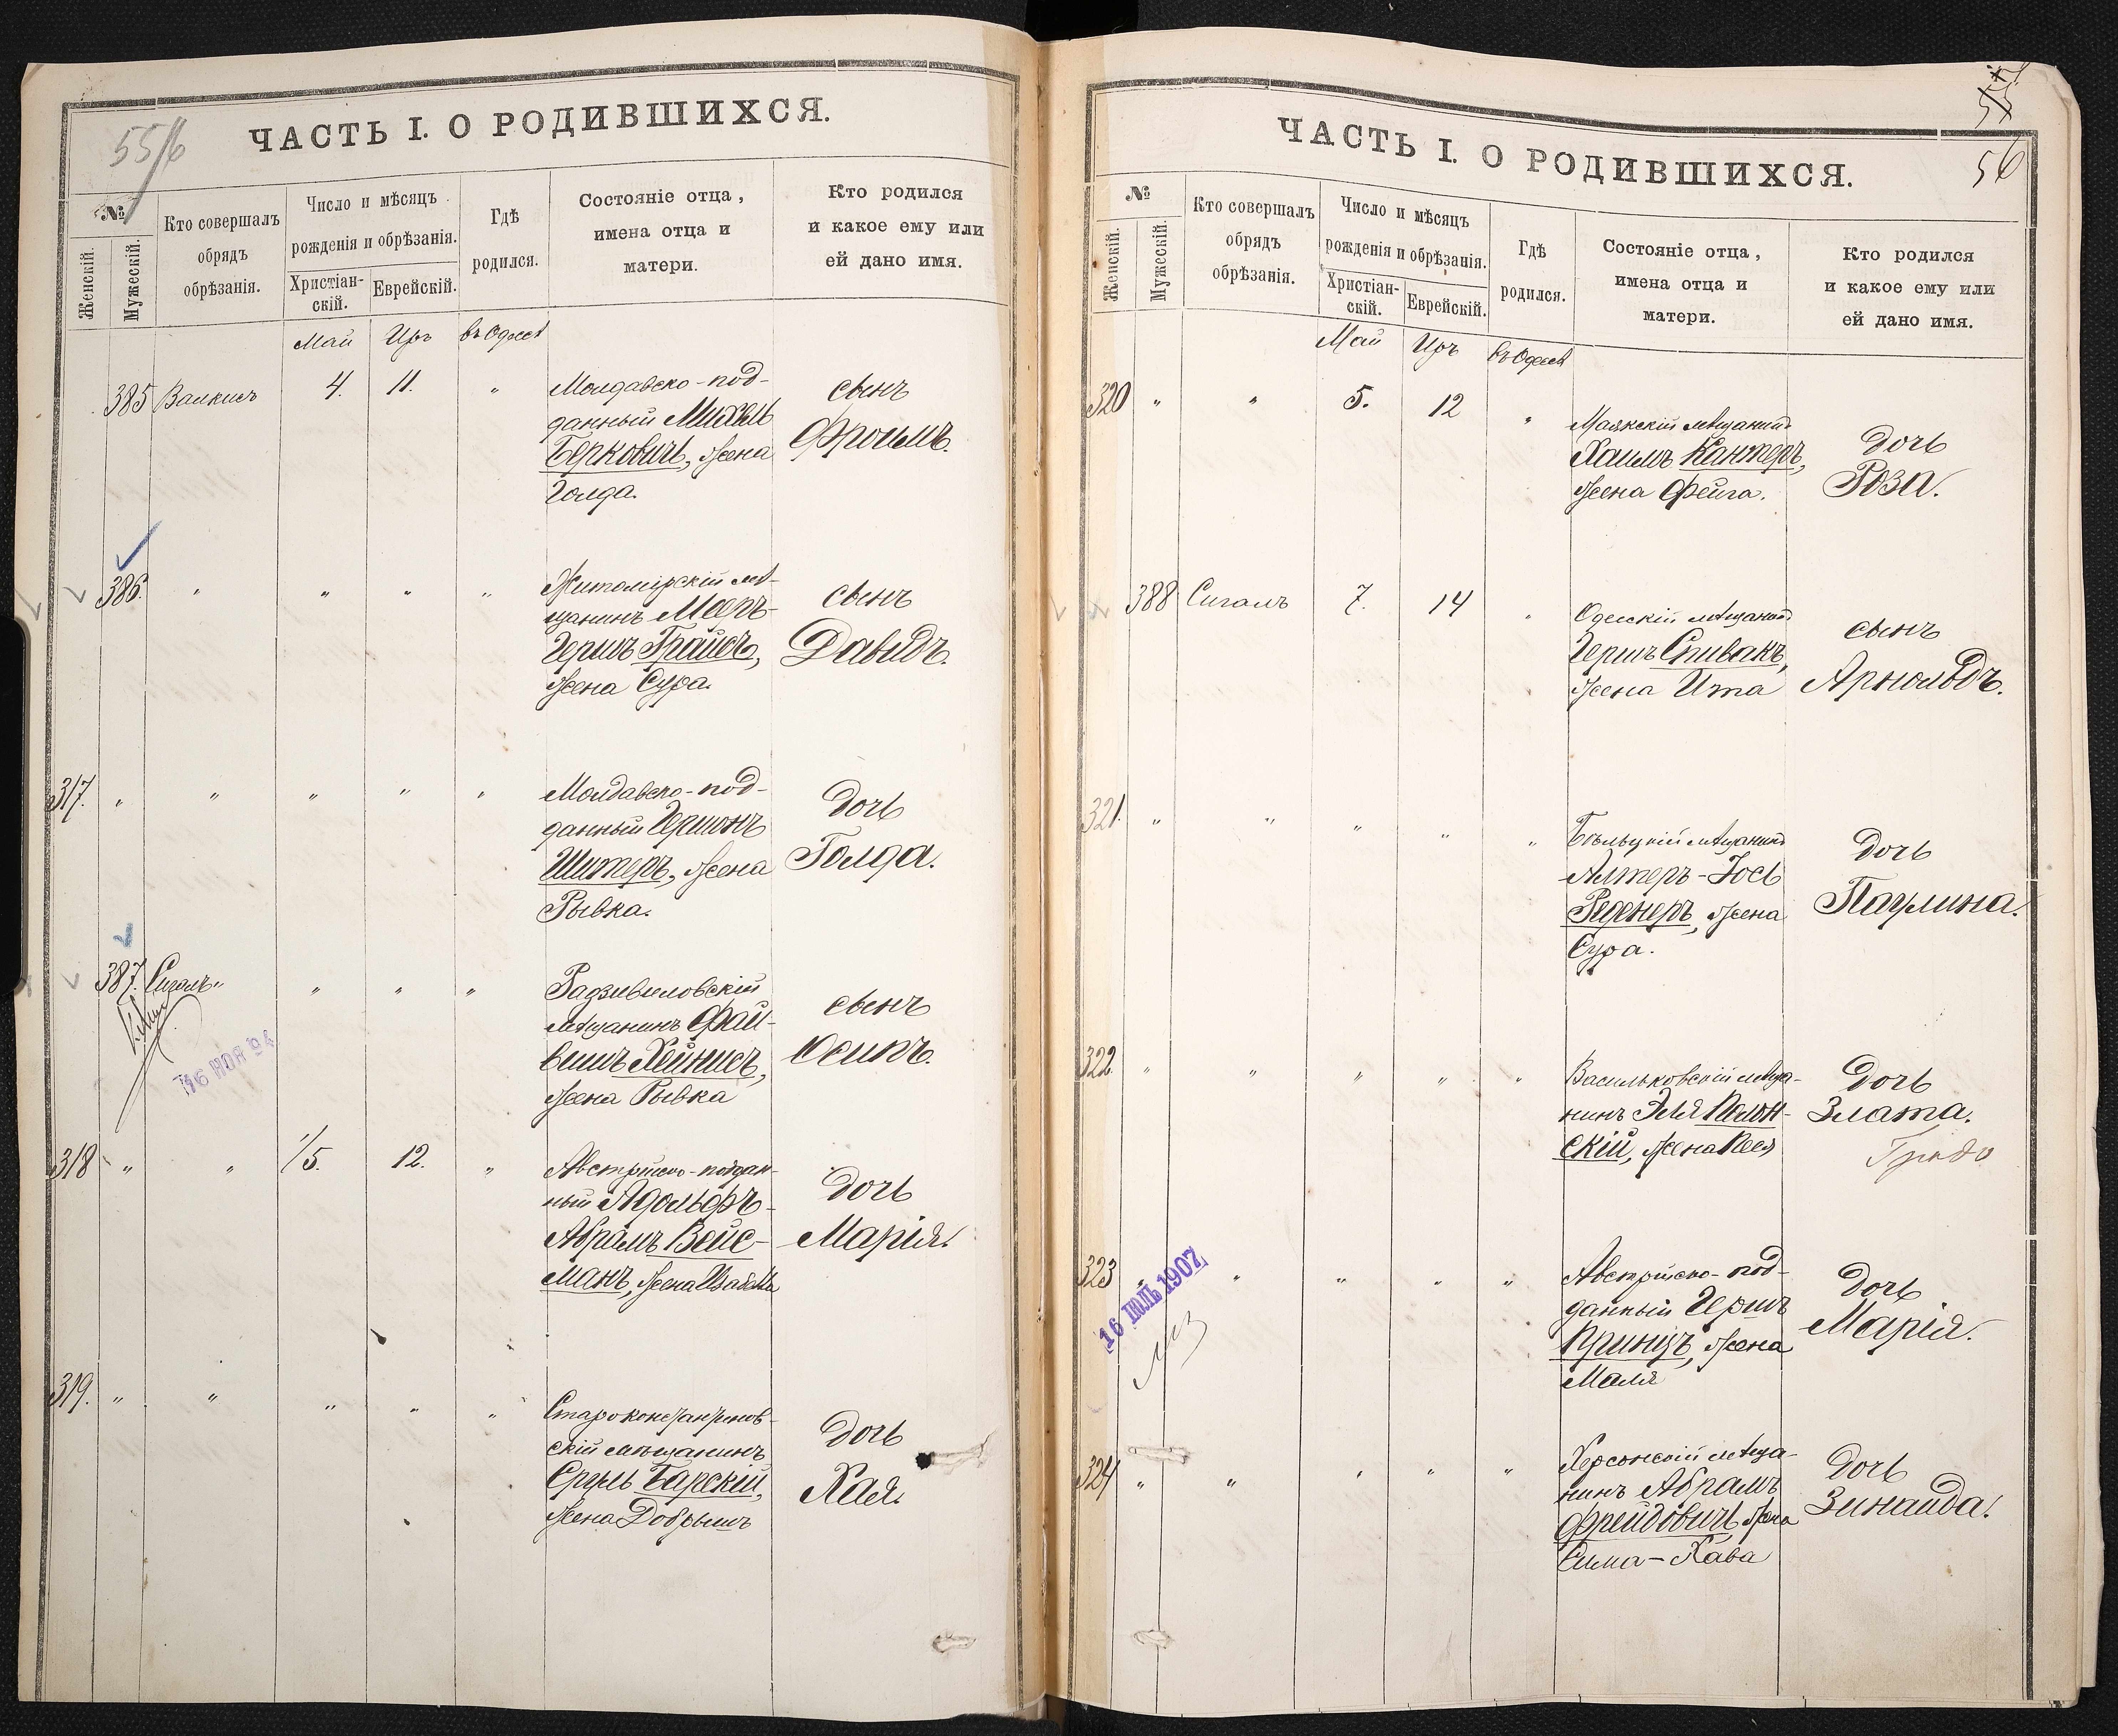 55/6
ЧАСТЬ I. О РОДИВШИХСЯ.
№
Женскій.
Мужескій.
Кто совершалъ
обрядъ
обрѣзанія.
Число и мѣсяцъ
рожденія и обрѣзанія.
Христіан-
скій.
Еврейскій.
Гдѣ
родился.
Состояніе отца,
имена отца и
матери.
Кто родился
и какое ему или
ей дано имя.
Май Иръ въ Одессѣ
385 Валкисъ 4. 11. "
Молдавско-под-
данный Михель
Берковичъ, жена
Голда.
сынъ
Фроимъ.
386. " " " "
Житомірскій мѣ-
щанинъ Мееръ-
Гершъ Грайсъ,
жена Сура.
сынъ
Давидъ.
317. " " " " "
Молдавско-под-
данный Гершонъ
Шитеръ, жена
Рывка.
дочь
Голда.
387. Сигалъ " " "
16 НОЯ 94
Радзивиловскій
мѣщанинъ Фай-
вишъ Хейнисъ,
жена Рывка
сынъ
Осипъ.
318 " " 1/5. 12. "
Австрійско-поддан-
ный Адольфъ-
Абрамъ Вейс-
манъ, жена
дочь
Марія.
319. " " " " "
Староконстантинов-
скій мѣщанинъ
Сруль Барскій,
жена Добрышъ
дочь
Хая.
56
ЧАСТЬ I. О РОДИВШИХСЯ.
№
Женскій.
Мужескій.
Кто совершалъ
обрядъ
обрѣзанія.
Число и мѣсяцъ
рожденія и обрѣзанія.
Христіан-
скій.
Еврейскій.
Гдѣ
родился.
Состояніе отца,
имена отца и
матери.
Кто родился
и какое ему или
ей дано имя.
Май Иръ въ Одессѣ
320 " " 5. 12 "
Маякскій мѣщанинъ
Хаимъ Кантеръ,
жена Фейга.
дочь
Роза.
388 Сигалъ 7. 14 "
Одесскій мѣщанинъ
Гершъ Спивакъ,
жена Ита
сынъ
Арнольдъ.
321. " " " " "
Бѣльцкій мѣщанинъ
Алтеръ-Іось
Реднеръ, жена
Сура.
дочь
Паулина.
322 " " " " "
Васильковскій мѣща-
нинъ Эля Полон-
скій, жена Песя
дочь
Злата.
323 " " " " "
16 ІЮЛЬ 1907
Австрійско-под-
данный Гершъ
Принцъ, жена
Маля
дочь
Марія.
324 " " " " "
Херсонскій мѣща-
нинъ Абрамъ
Фрейдовичъ, жена
Сима-Хава
дочь
Зинаида.